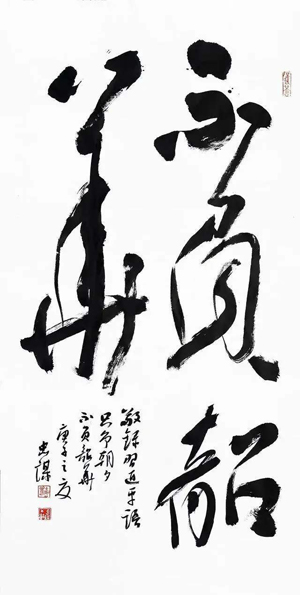 不負韶
華
敬録習近平語
只争朝夕
不負韶華
庚子之夏